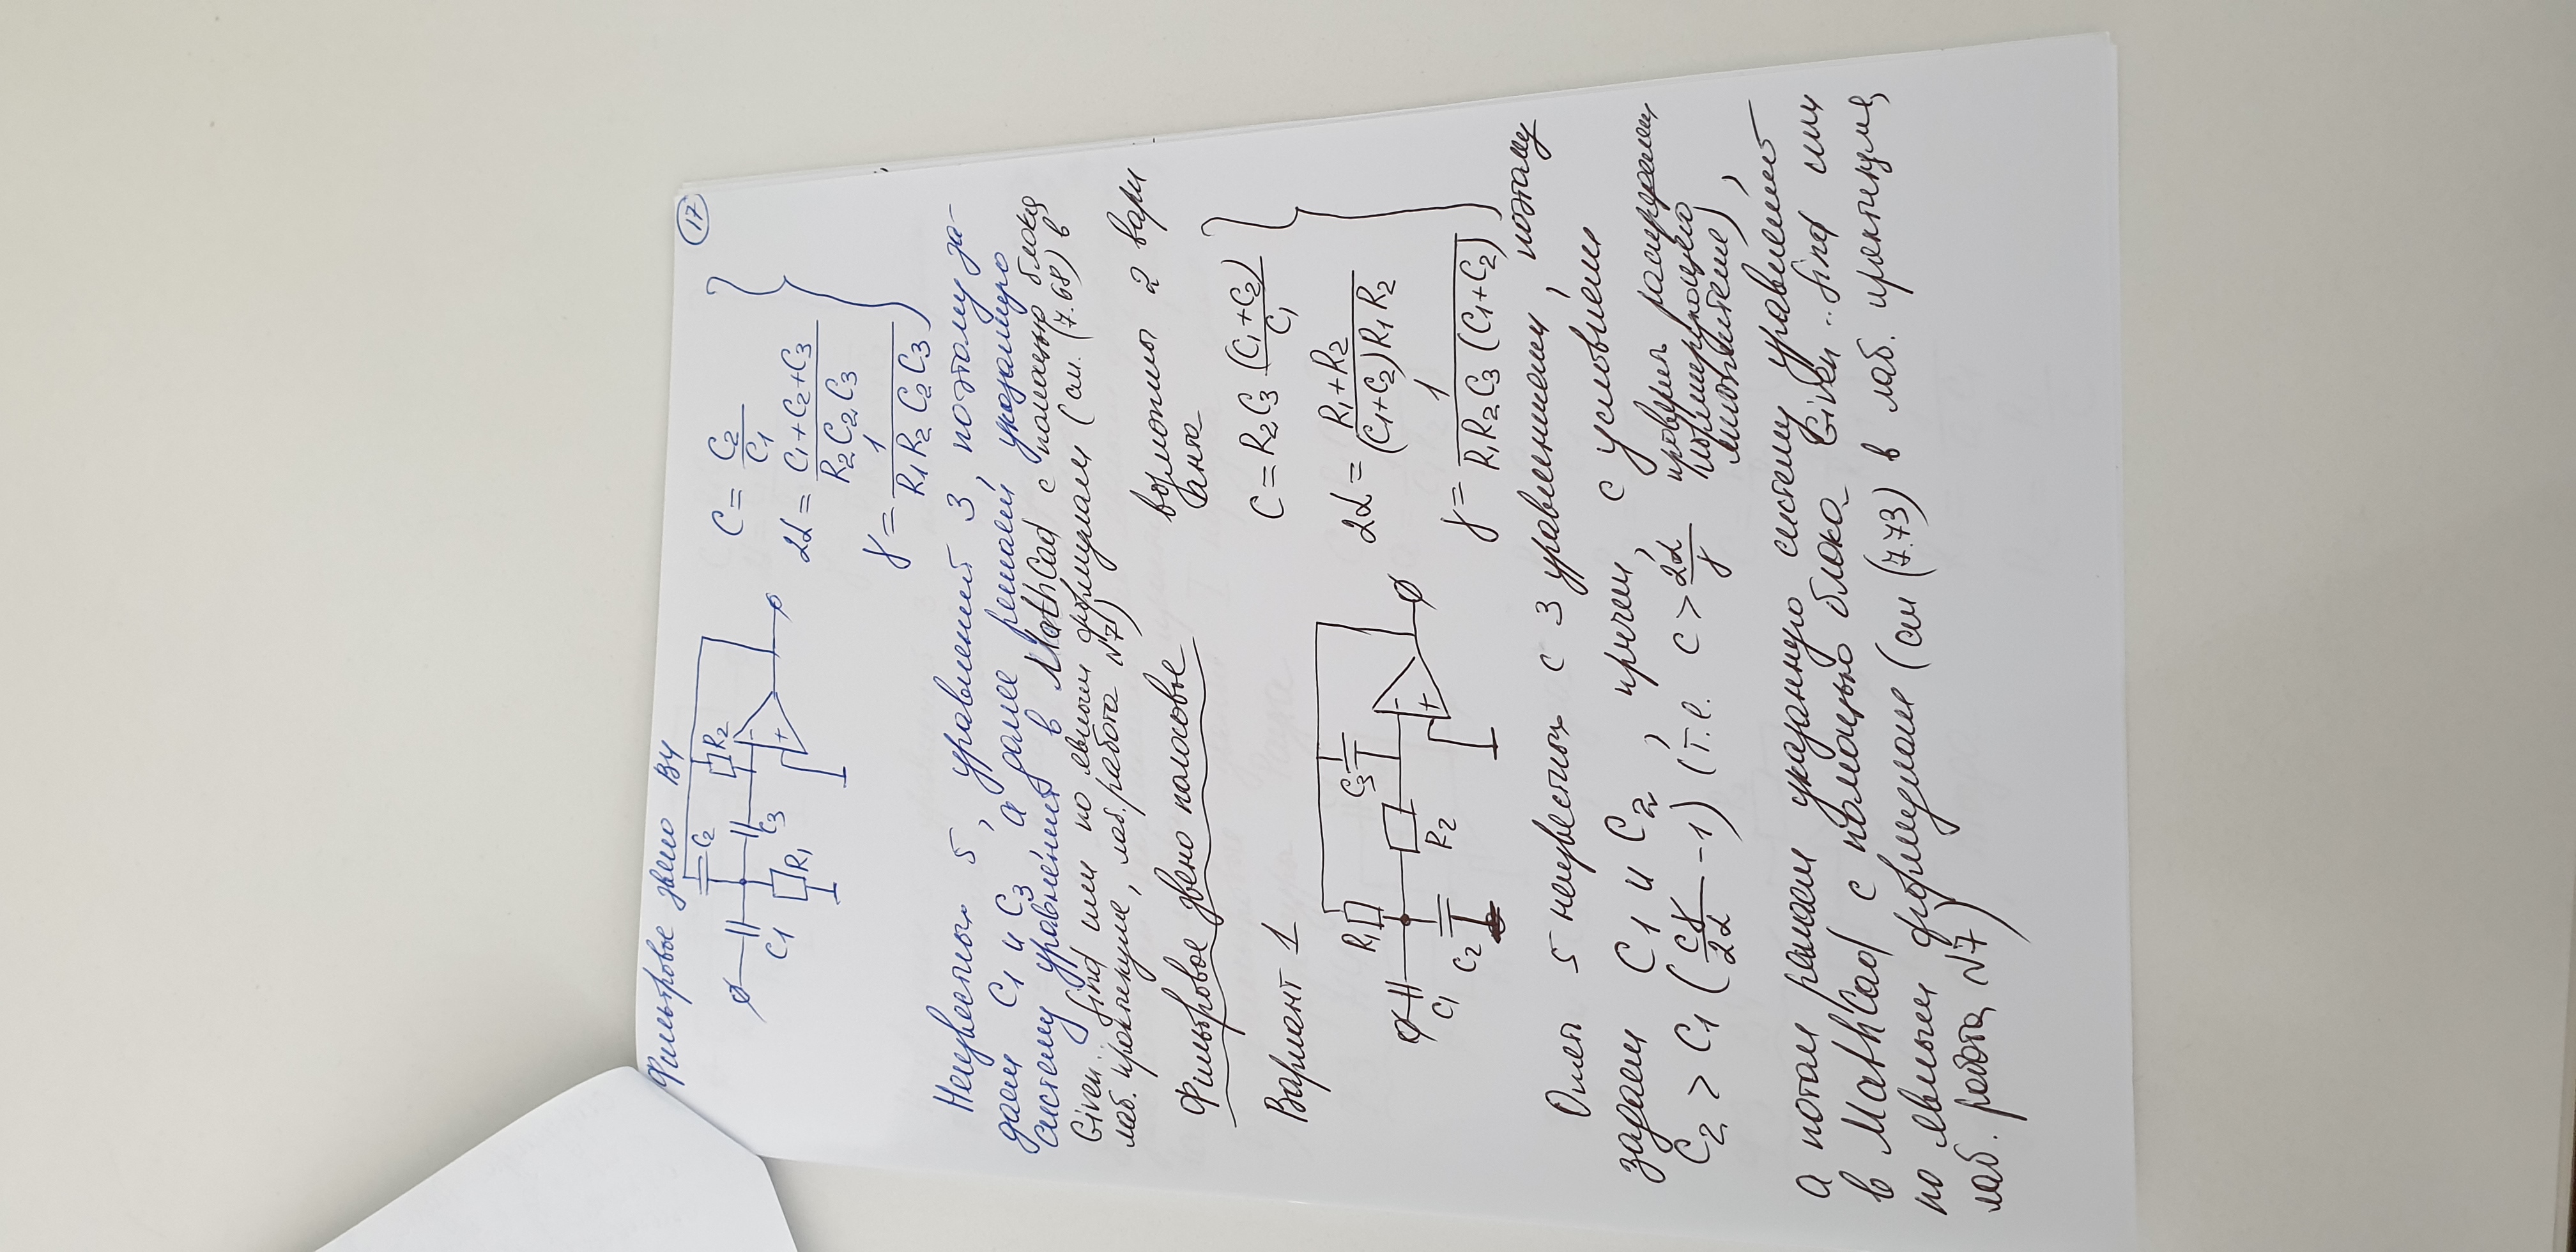 Фильтровое звено ВЧ
17
C2
R2
C1
C3
R1
-
+
C = C2 / C1
2α = C1+C2+C3 / R2 C2 C3
γ = 1 / R1 R2 C2 C3
Неизвестных 5, уравнений 3, поэтому за-
даем C1 и C3, а далее решаем указанную
систему уравнений в MathCad с помощью блока
Given.. find или по явным формулам (см. (7.68) в
лаб. практикуме, лаб. работа №7)
Фильтровое звено полосовое
возможны 2 вари
анта
Вариант 1
R1
C3
C1
C2
R2
-
+
C = R2 C3 (C1+C2) / C1
2α = R1+R2 / (C1+C2) R1 R2
γ = 1 / R1 R2 C3 (C1+C2)
Опять 5 неизвестных с 3 уравнениями, поэтому
задаем C1 и C2, причем, с условием
C2 > C1 (Cγ / 2α - 1) (т.е. C > 2α / γ проверить
нормирующего
множителя),
а потом решаем указанную систему уравнений
в MathCad с помощью блока Given.. find или
по явным формулам (см (7.73) в лаб. практикуме,
лаб. работа №7)